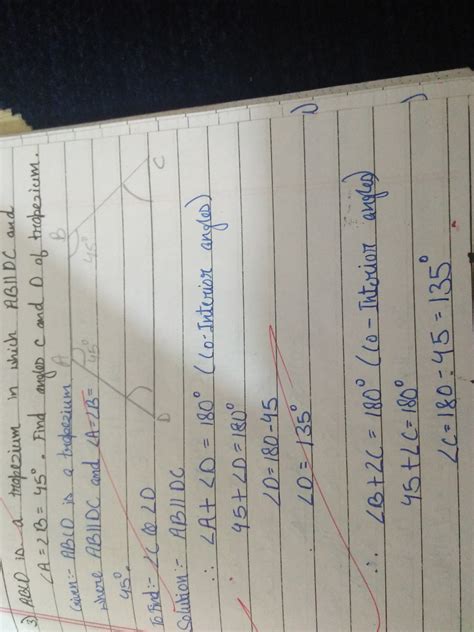 3) ABCD is a trapezium in which AB||DC and
∠A = ∠B = 45°. Find angles C and D of trapezium.
Given:- ABCD is a trapezium
where AB||DC and ∠A = ∠B =
45°.
To Find:- ∠C & ∠D
A
B
45°
45°
D
C
Solution:- AB||DC
∴ ∠A + ∠D = 180° (Co-Interior angles)
45 + ∠D = 180°
∠D = 180 - 45
∠D = 135°
∴ ∠B + ∠C = 180° (Co-Interior angles)
45 + ∠C = 180°
∠C = 180 - 45 = 135°